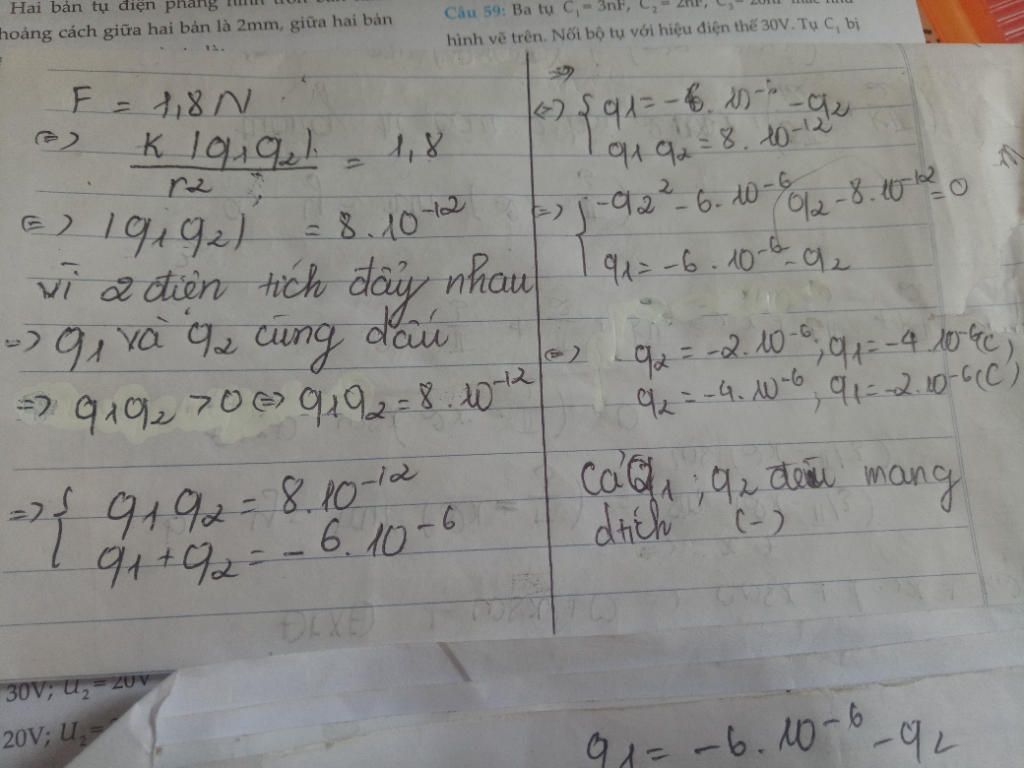 Hai bản tụ điện phẳng hình tròn bán
hoảng cách giữa hai bản là 2mm, giữa hai bản
Câu 59: Ba tụ C₁ = 3nF, C₂ = 2nF, C₃ = 20nF mắc như
hình vẽ trên. Nối bộ tụ với hiệu điện thế 30V. Tụ C₁ bị
F = 1,8 N
⇔ K |q1q2| / r2 = 1,8
⇔ |q1q2| = 8.10⁻¹²
vì 2 điện tích đẩy nhau
=> q1 và q2 cùng dấu
=> q1q2 > 0 ⇔ q1q2 = 8.10⁻¹²
=> { q1q2 = 8.10⁻¹²
q1+q2 = - 6.10⁻⁶
=>
⇔ { q1 = -6.10⁻⁶ - q2
q1q2 = 8.10⁻¹²
=> { -q2² - 6.10⁻⁶ q2 - 8.10⁻¹² = 0
q1 = -6.10⁻⁶ - q2
=> q2 = -2.10⁻⁶; q1 = -4.10⁻⁶(C)
q2 = -4.10⁻⁶; q1 = -2.10⁻⁶(C)
Cả q1; q2 đều mang
đtích (-)
30V; U₂ = 20V
20V; U₂ =
q1 = -6.10⁻⁶ - q2